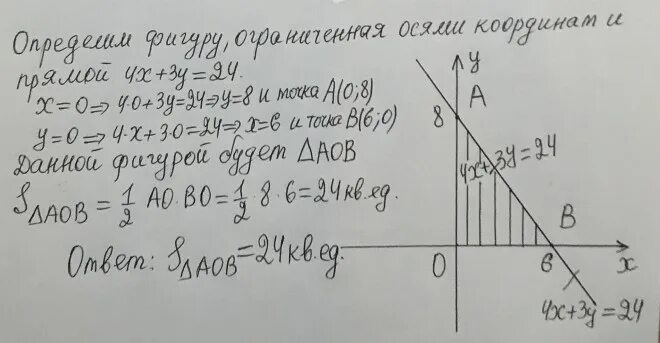 Определим фигуру, ограниченная осями координат и
прямой 4x+3y=24.
x=0⇒ 4·0+3y=24⇒y=8 и точка A(0;8)
y=0⇒ 4·x+3·0=24⇒x=6 и точка B(6;0)
Данной фигурой будет ΔAOB
S ΔAOB = 1/2 AO·BO = 1/2·8·6=24кв.ед.
Ответ: S ΔAOB =24кв.ед.
y
A
8
4x+3y=24
B
O
6
x
4x+3y=24